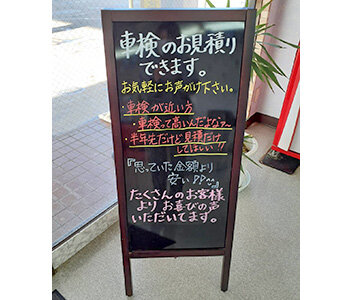 車検のお見積り
できます。
お気軽にお声がけ下さい。
・車検が近い方
・車検って高いんだよな〜
・半年先だけど見積だけ
してほしい!!
『思っていた金額より
安い!?』
たくさんのお客様
よりお喜びの声
いただいてます。